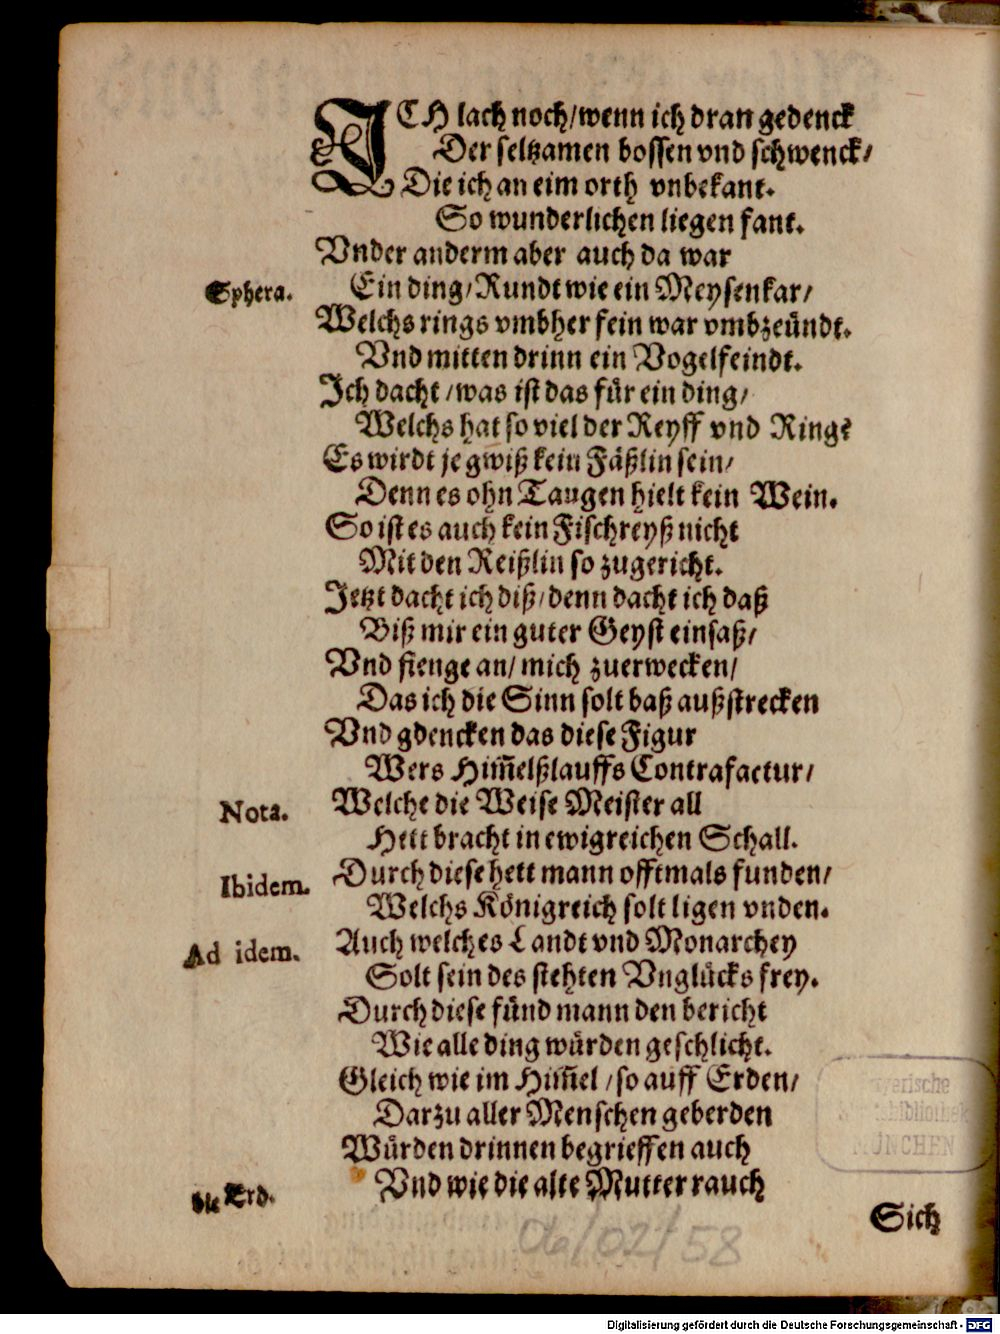 ICH lach noch/wenn ich dran gedenck
Der seltzamen bossen vnd schwenck/
Die ich an eim orth vnbekant.
So wunderlichen liegen fant.
Vnder anderm aber auch da war
Sphera. Ein ding/Rundt wie ein Meysenkar/
Welchs rings vmbher fein war vmbzeündt.
Vnd mitten drinn ein Vogelfeindt.
Ich dacht/was ist das für ein ding/
Welchs hat so viel der Reyff vnd Ringe
Es wirdt je gwiß kein Fäßlin sein/
Denn es ohn Taugen hielt kein Wein.
So ist es auch kein Fischreyß nicht
Mit den Reißlin so zugericht.
Jetzt dacht ich diß/denn dacht ich daß
Biß mir ein guter Geyst einsaß/
Vnd fienge an/mich zuerwecken/
Das ich die Sinn solt baß außstrecken
Vnd gdencken das diese Figur
Wers Him̃elßlauffs Contrafactur/
Nota. Welche die Weise Meister all
Hett bracht in ewigreichen Schall.
Ibidem. Durch diese hett mann offtmals funden/
Welchs Königreich solt ligen vnden.
Ad idem. Auch welches Landt vnd Monarchey
Solt sein des stehten Vnglücks frey.
Durch diese fünd mann den bericht
Wie alle ding würden geschlicht.
Gleich wie im Him̃el/so auff Erden/
Darzu aller Menschen geberden
Würden drinnen begrieffen auch
die Erd. Vnd wie die alte Mutter rauch
Sich
06/02/58
Bayerische
Staatsbibliothek
MÜNCHEN
Digitalisierung gefördert durch die Deutsche Forschungsgemeinschaft - DFG